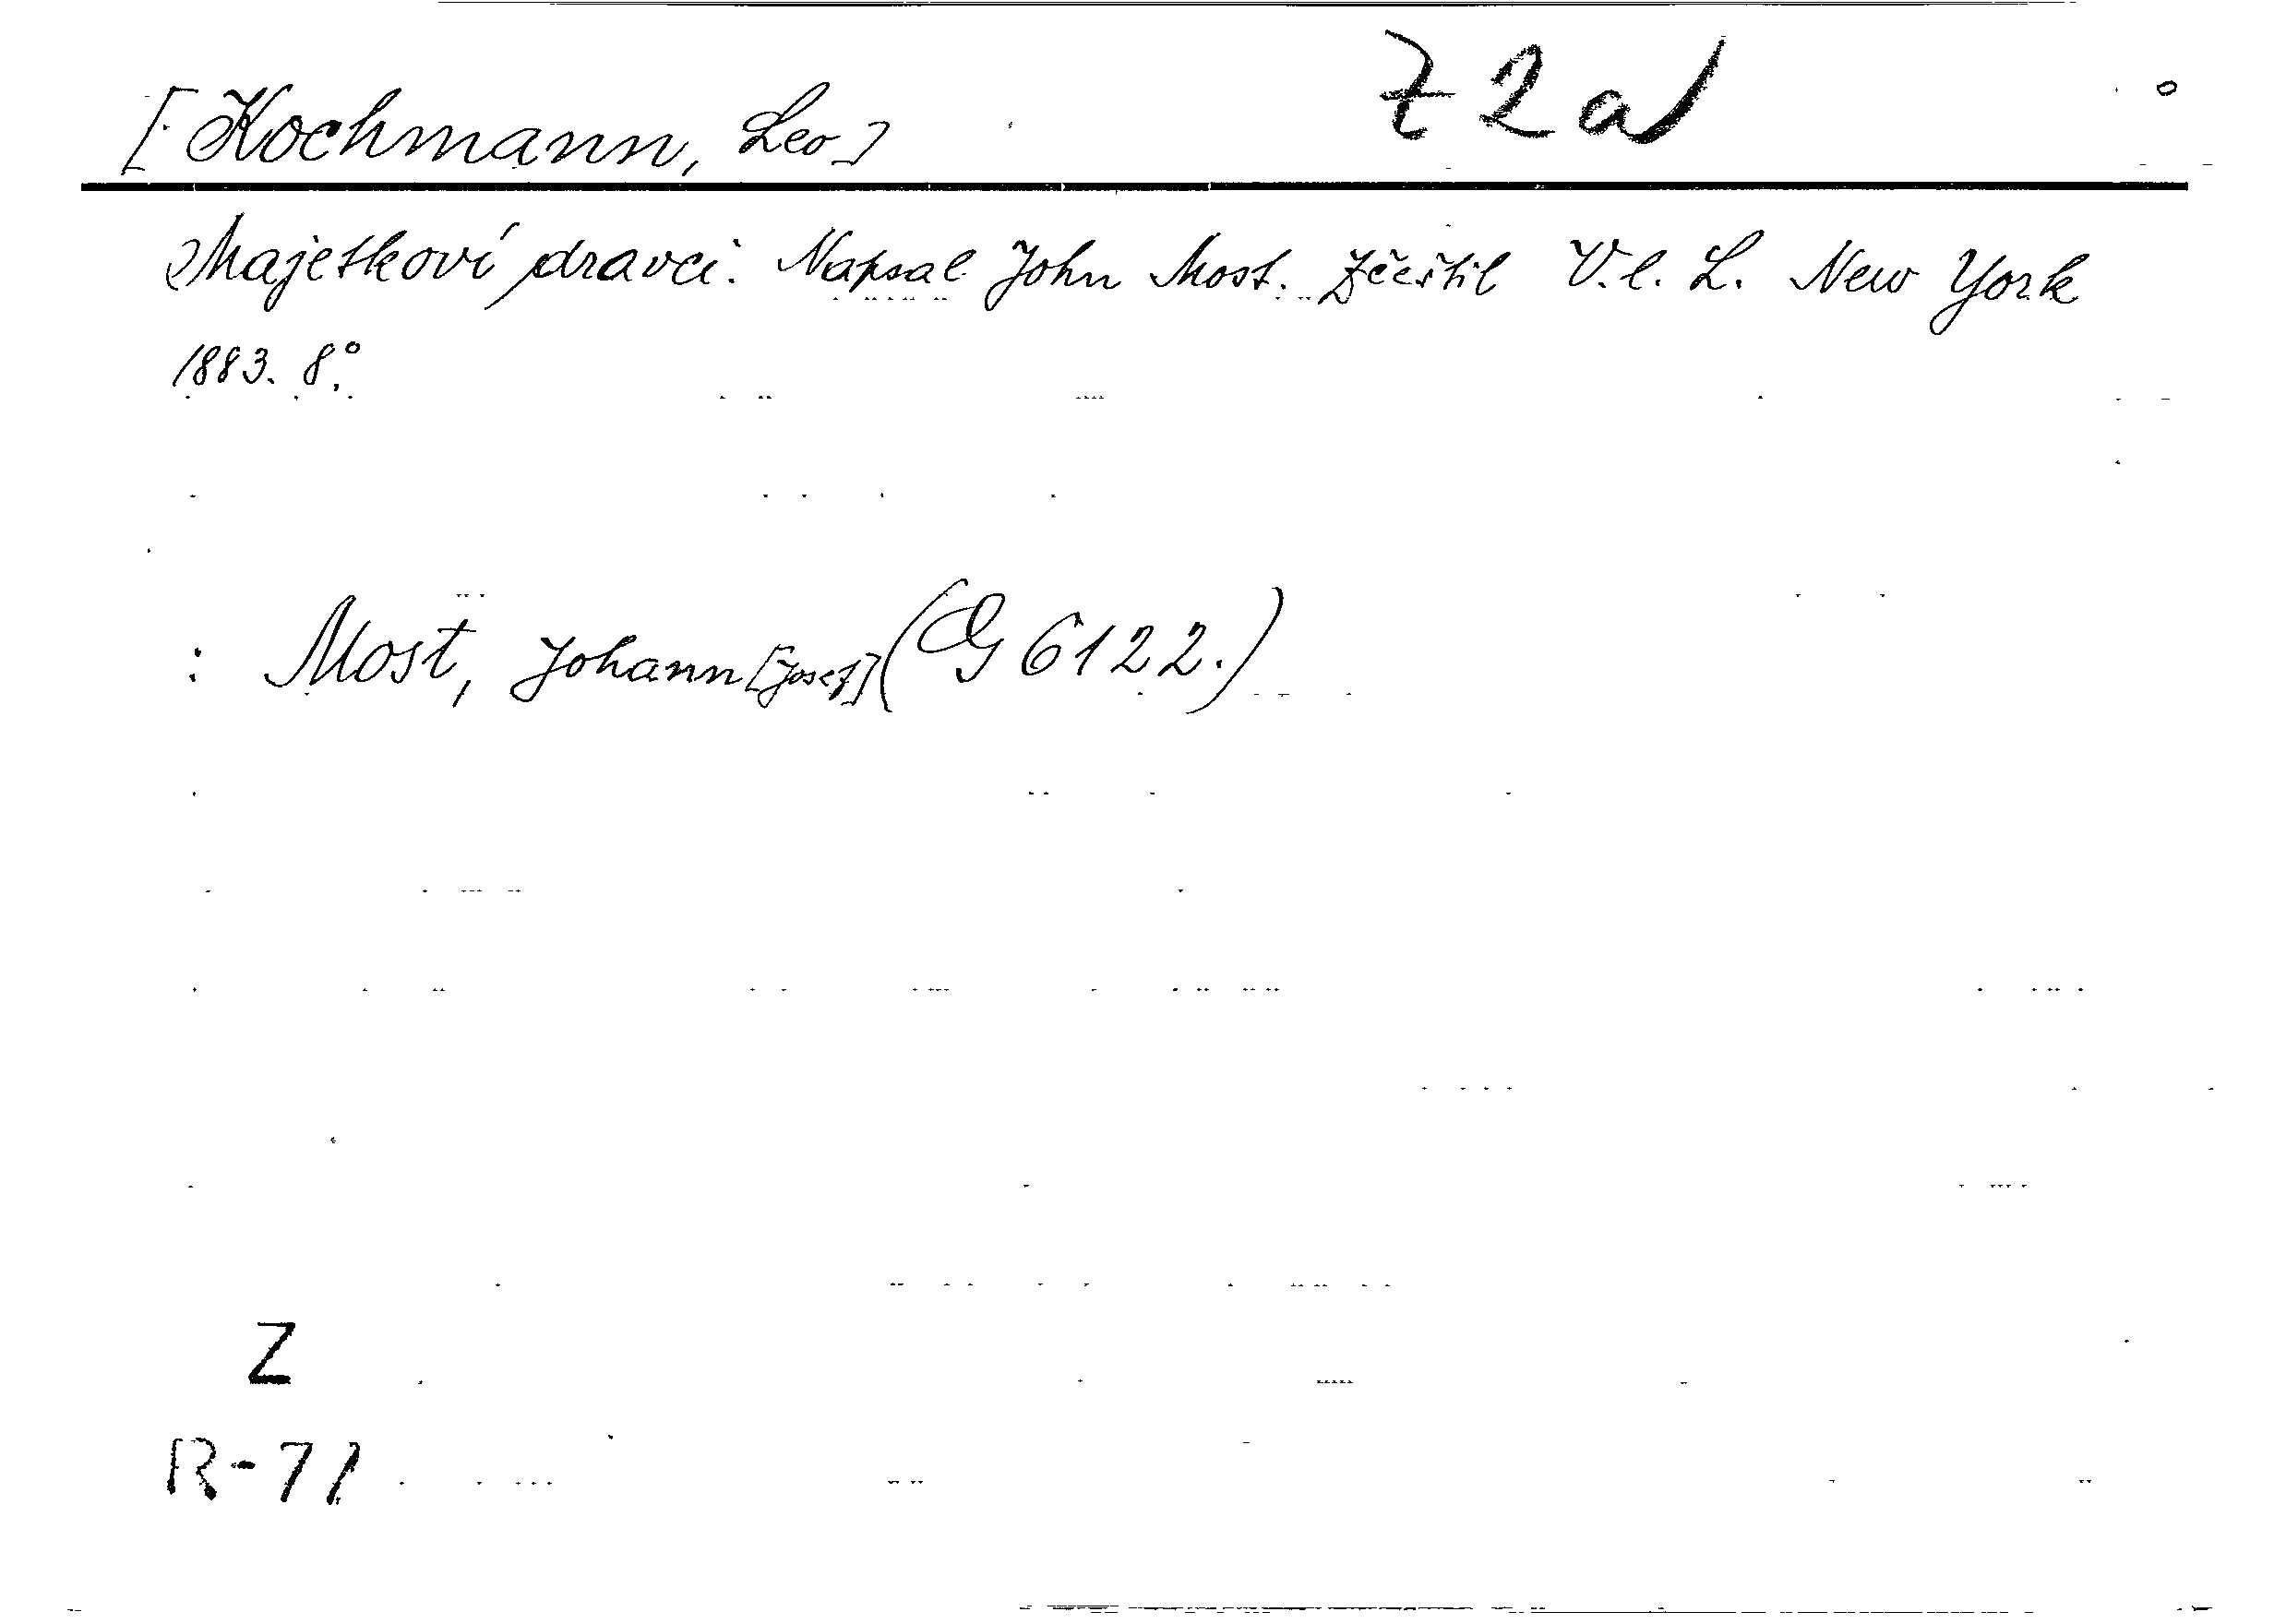 [Kochmann, Leo] Z 2a
Majetkoví dravci. Napsal John Most. Zčeštil V. l. L. New York
1883. 8°.
: Most, Johann [Josef] (G 6122.)
Z
R-71